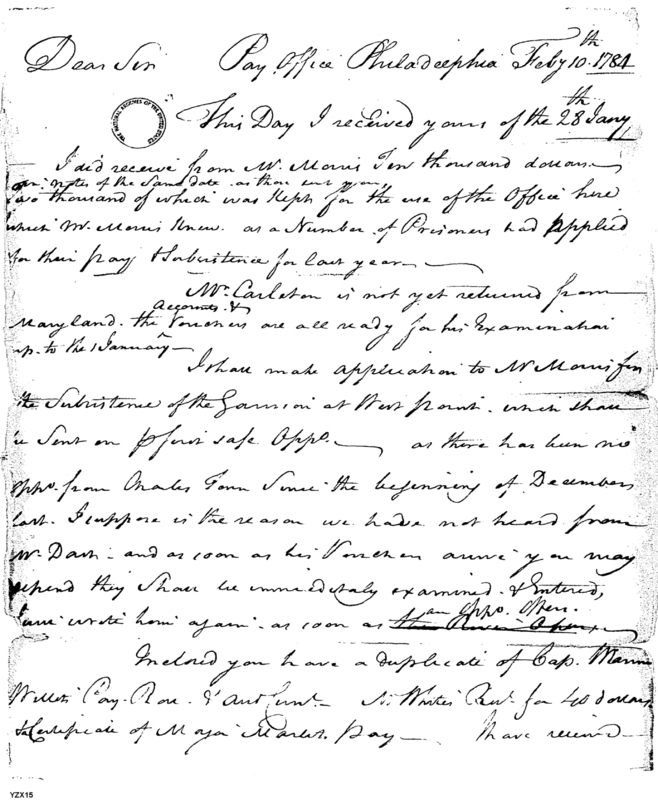 Dear Sir Pay Office Philadelphia Feby 10th 1784
THE NATIONAL ARCHIVES OF THE UNITED STATES
This Day I received yours of the 28th Jany
I did receive from Mr. Morris Ten thousand dollars
in notes of the same date as those sent you
two thousand of which was kept for the use of the Office here
which Mr. Morris knew as a Number of Prisoners had applied
for their pay & Subsistence for last year
Mr. Carleton is not yet returned from
Maryland. the Accounts & Vouchers are all ready for his Examination
up to the 1 January
I shall make application to Mr Morris for
the Subsistence of the Garrison at West point which shall
be Sent on first safe Oppo. as there has been no
Oppo. from Charles Town Since the beginning of December
last. I suppose is the reason we have not heard from
Mr. Dart and as soon as his Vouchers arrive you may
depend they Shall be immediately examined & Entered,
wrote him again as soon as an Oppo. Offers.
Inclosed you have a duplicate of Cap.
Pay Roll & Recpt. for 40 dollars
& Certificate of Major Pay I have received
YZX15